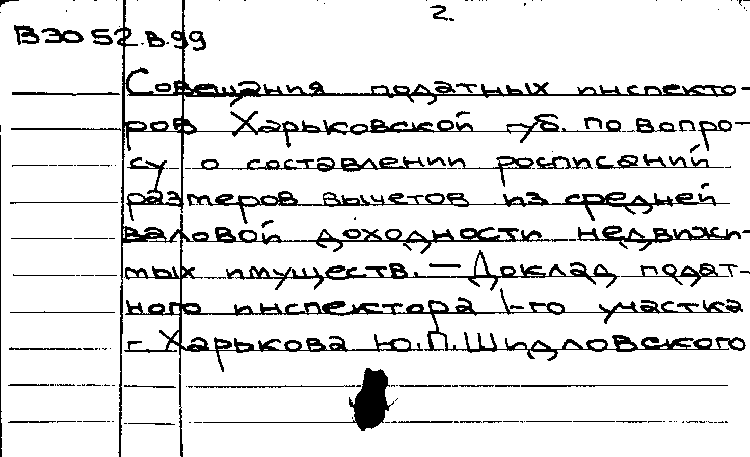 2.
В3052.В.99
Совещания податных инспекто-
ров Харьковской губ. по вопро-
су о составлении росписаний
размеров вычетов из средней
валовой доходности недвижи-
мых имуществ. — Доклад подат-
ного инспектора 1-го участка
г. Харькова Ю.П.Шидловского